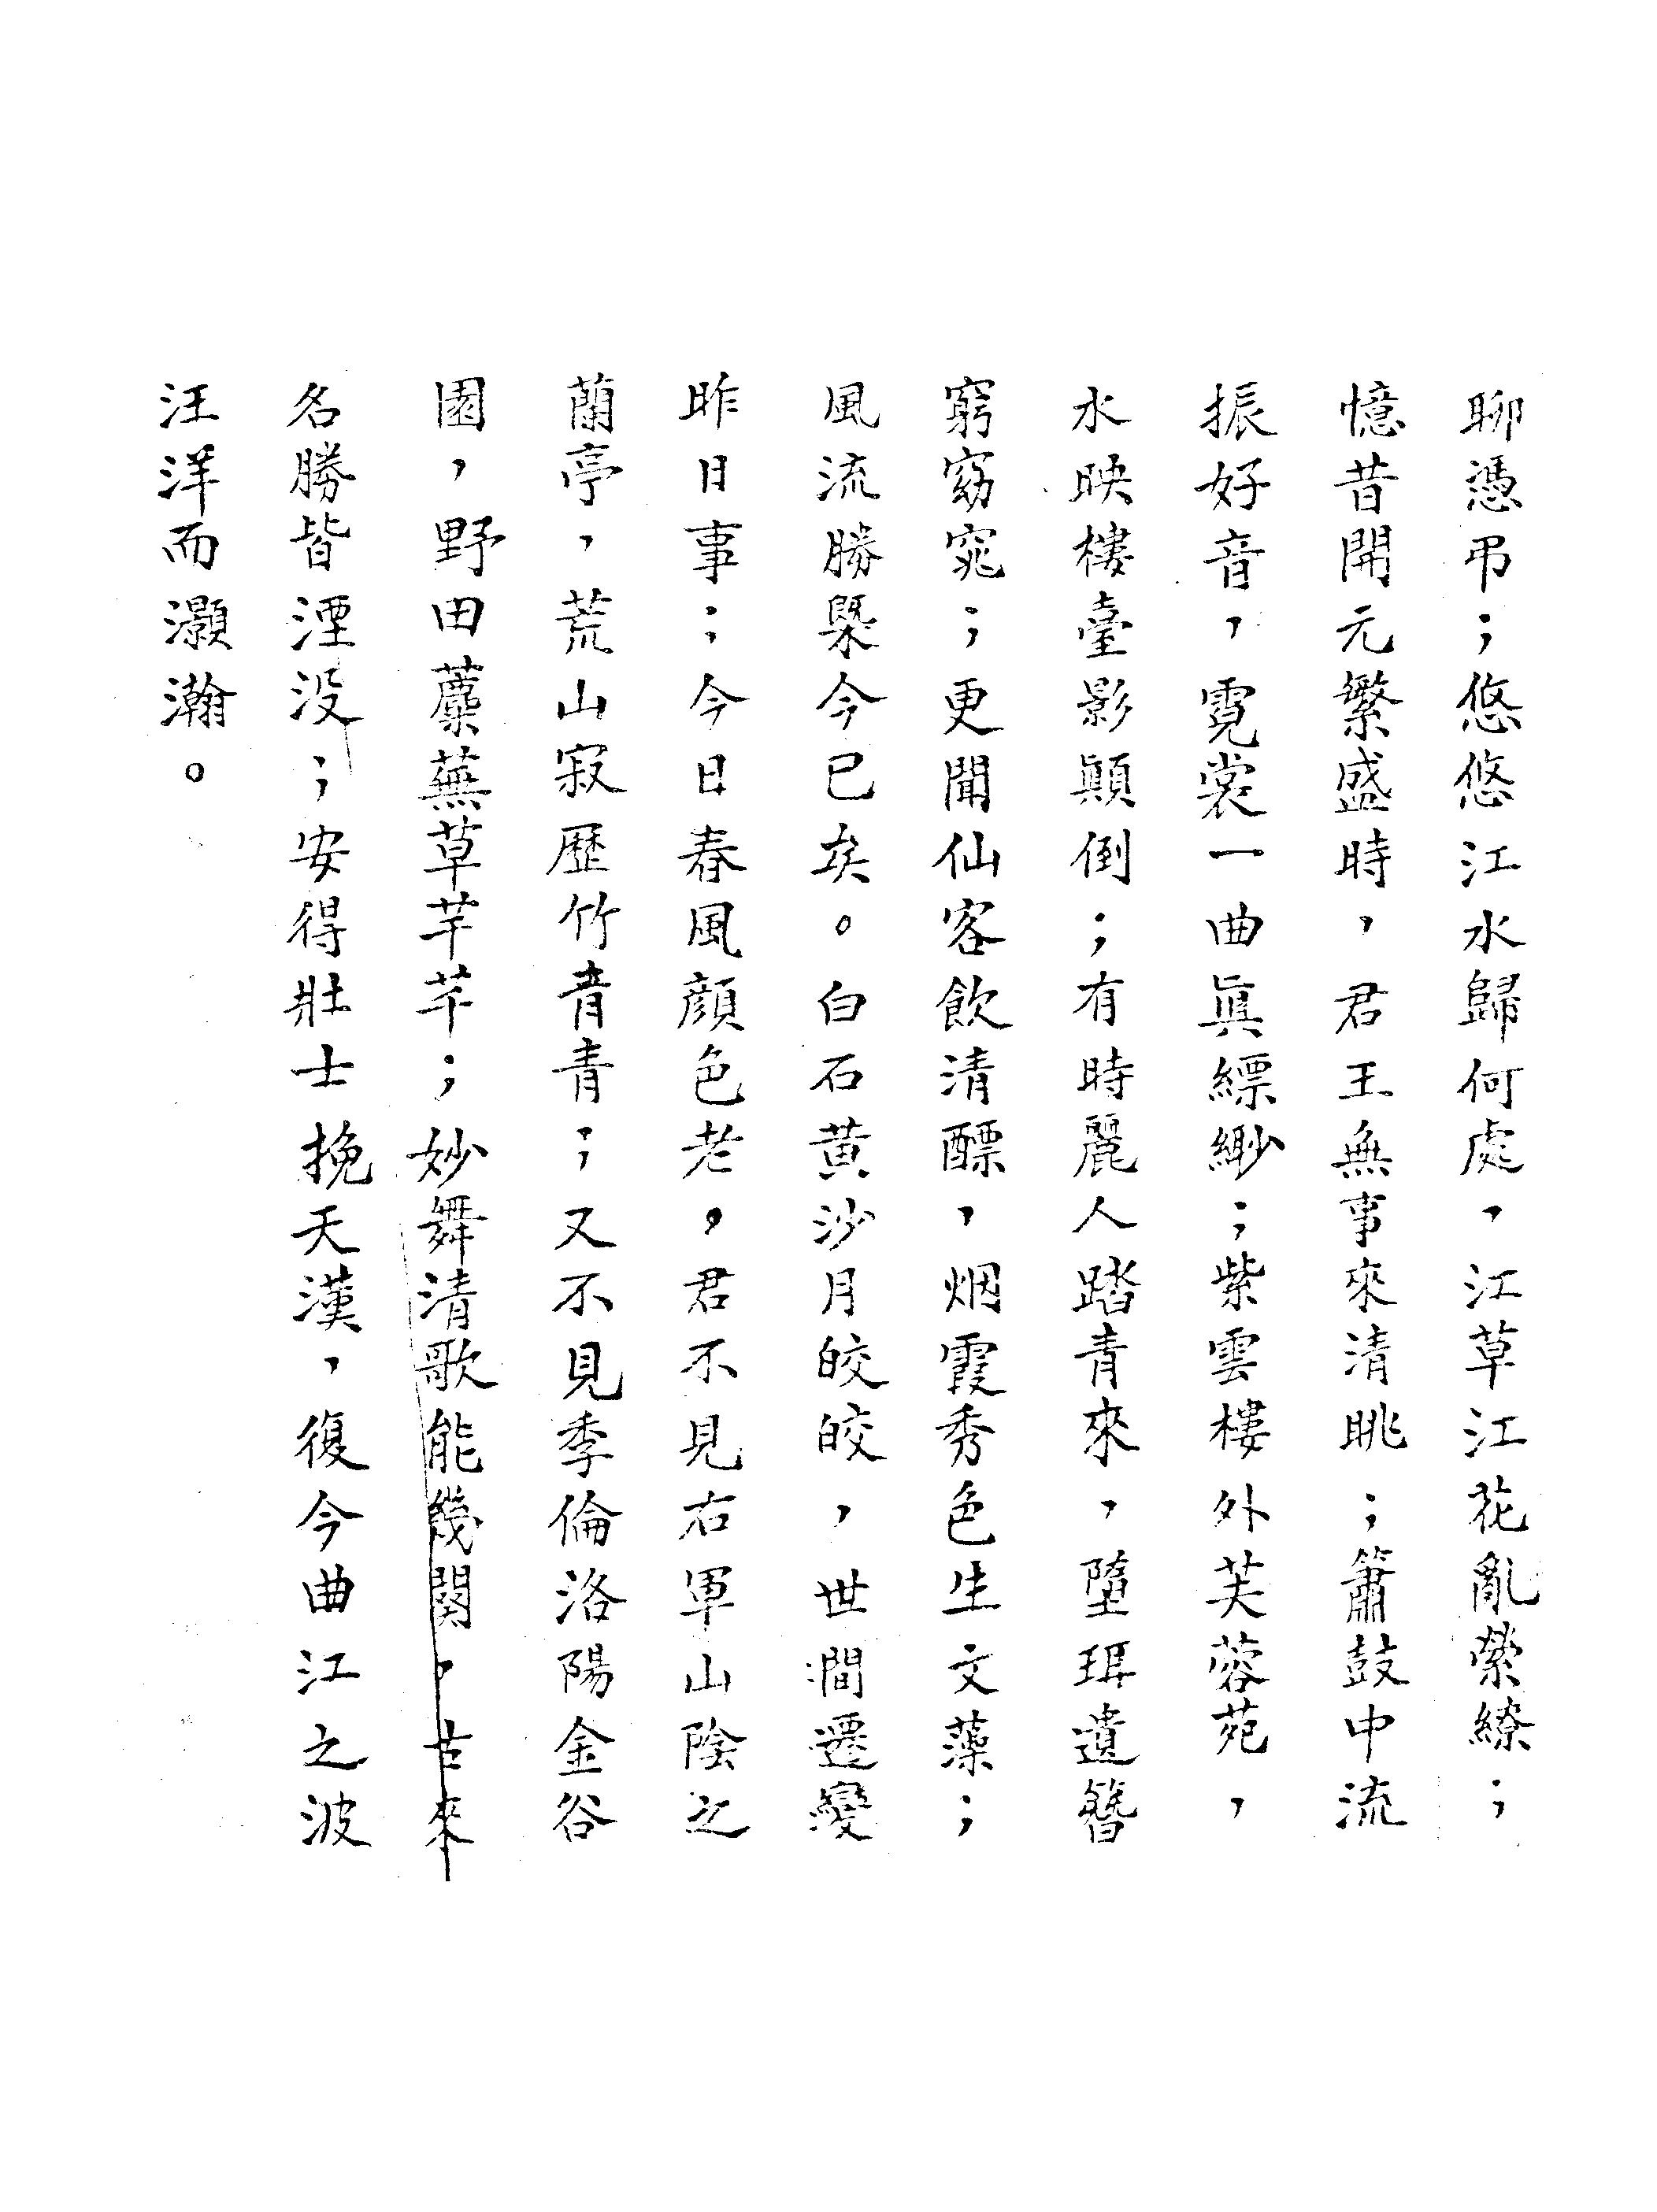 聊憑弔；悠悠江水歸何處，江草江花亂縈繚；
憶昔開元繁盛時，君王無事來清眺；簫鼓中流
振好音，霓裳一曲眞縹緲；紫雲樓外芙蓉苑，
水映樓臺影顚倒；有時麗人踏青來，墮珥遺簪
窮窈窕；更聞仙客飲清醥，烟霞秀色生文藻；
風流勝槩今已矣。白石黄沙月皎皎，世間遷變
昨日事；今日春風顔色老，君不見右軍山陰之
蘭亭，荒山寂歷竹青青；又不見季倫洛陽金谷
園，野田蘪蕪草芊芊；妙舞清歌能幾闋，古來
名勝皆湮没；安得壯士挽天漢，復今曲江之波
汪洋而灝瀚。